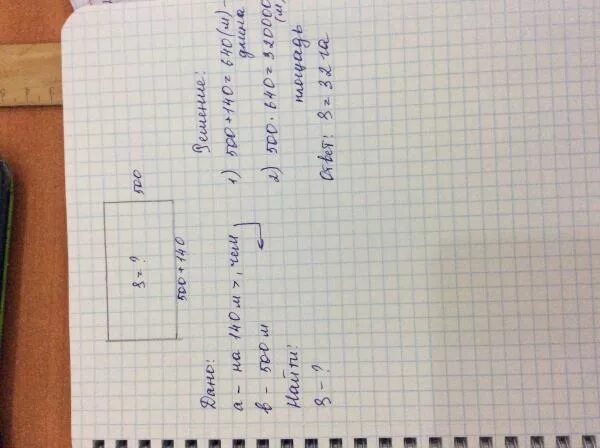 S = ?
500
500 + 140
Дано:
а - на 140 м >, чем
в - 500 м
Найти:
S - ?
Решение:
1) 500 + 140 = 640 (м) -
длина
2) 500 · 640 = 320000
(м
площадь
Ответ: S = 32 га